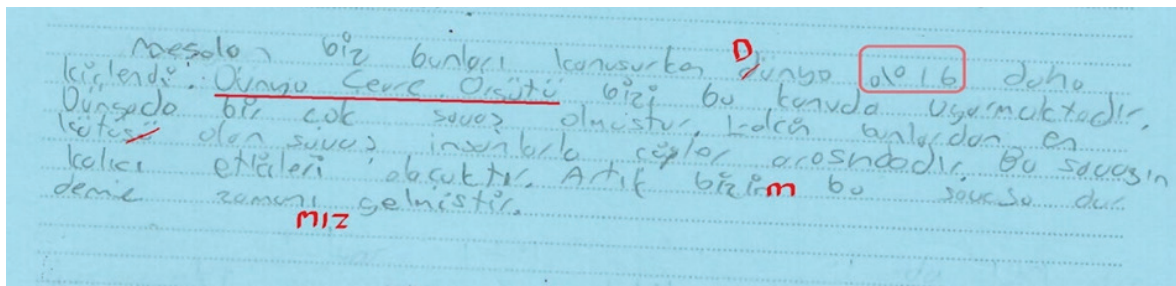 Mesela, biz bunları konuşurken dünya %0 1.6 daha D
kirlendi. Dünya Çevre Örgütü bizi bu konuda uyarmaktadır.
Dünyada bir çok savaş olmuştur. Lakin bunlardan en
kötüsü olan savaş insanlarla çöpler arasındadır. Bu savaşın
kalıcı etkileri olacaktır. Artık bizim bu savaşa dur m
deme zamanı gelmiştir.
mız